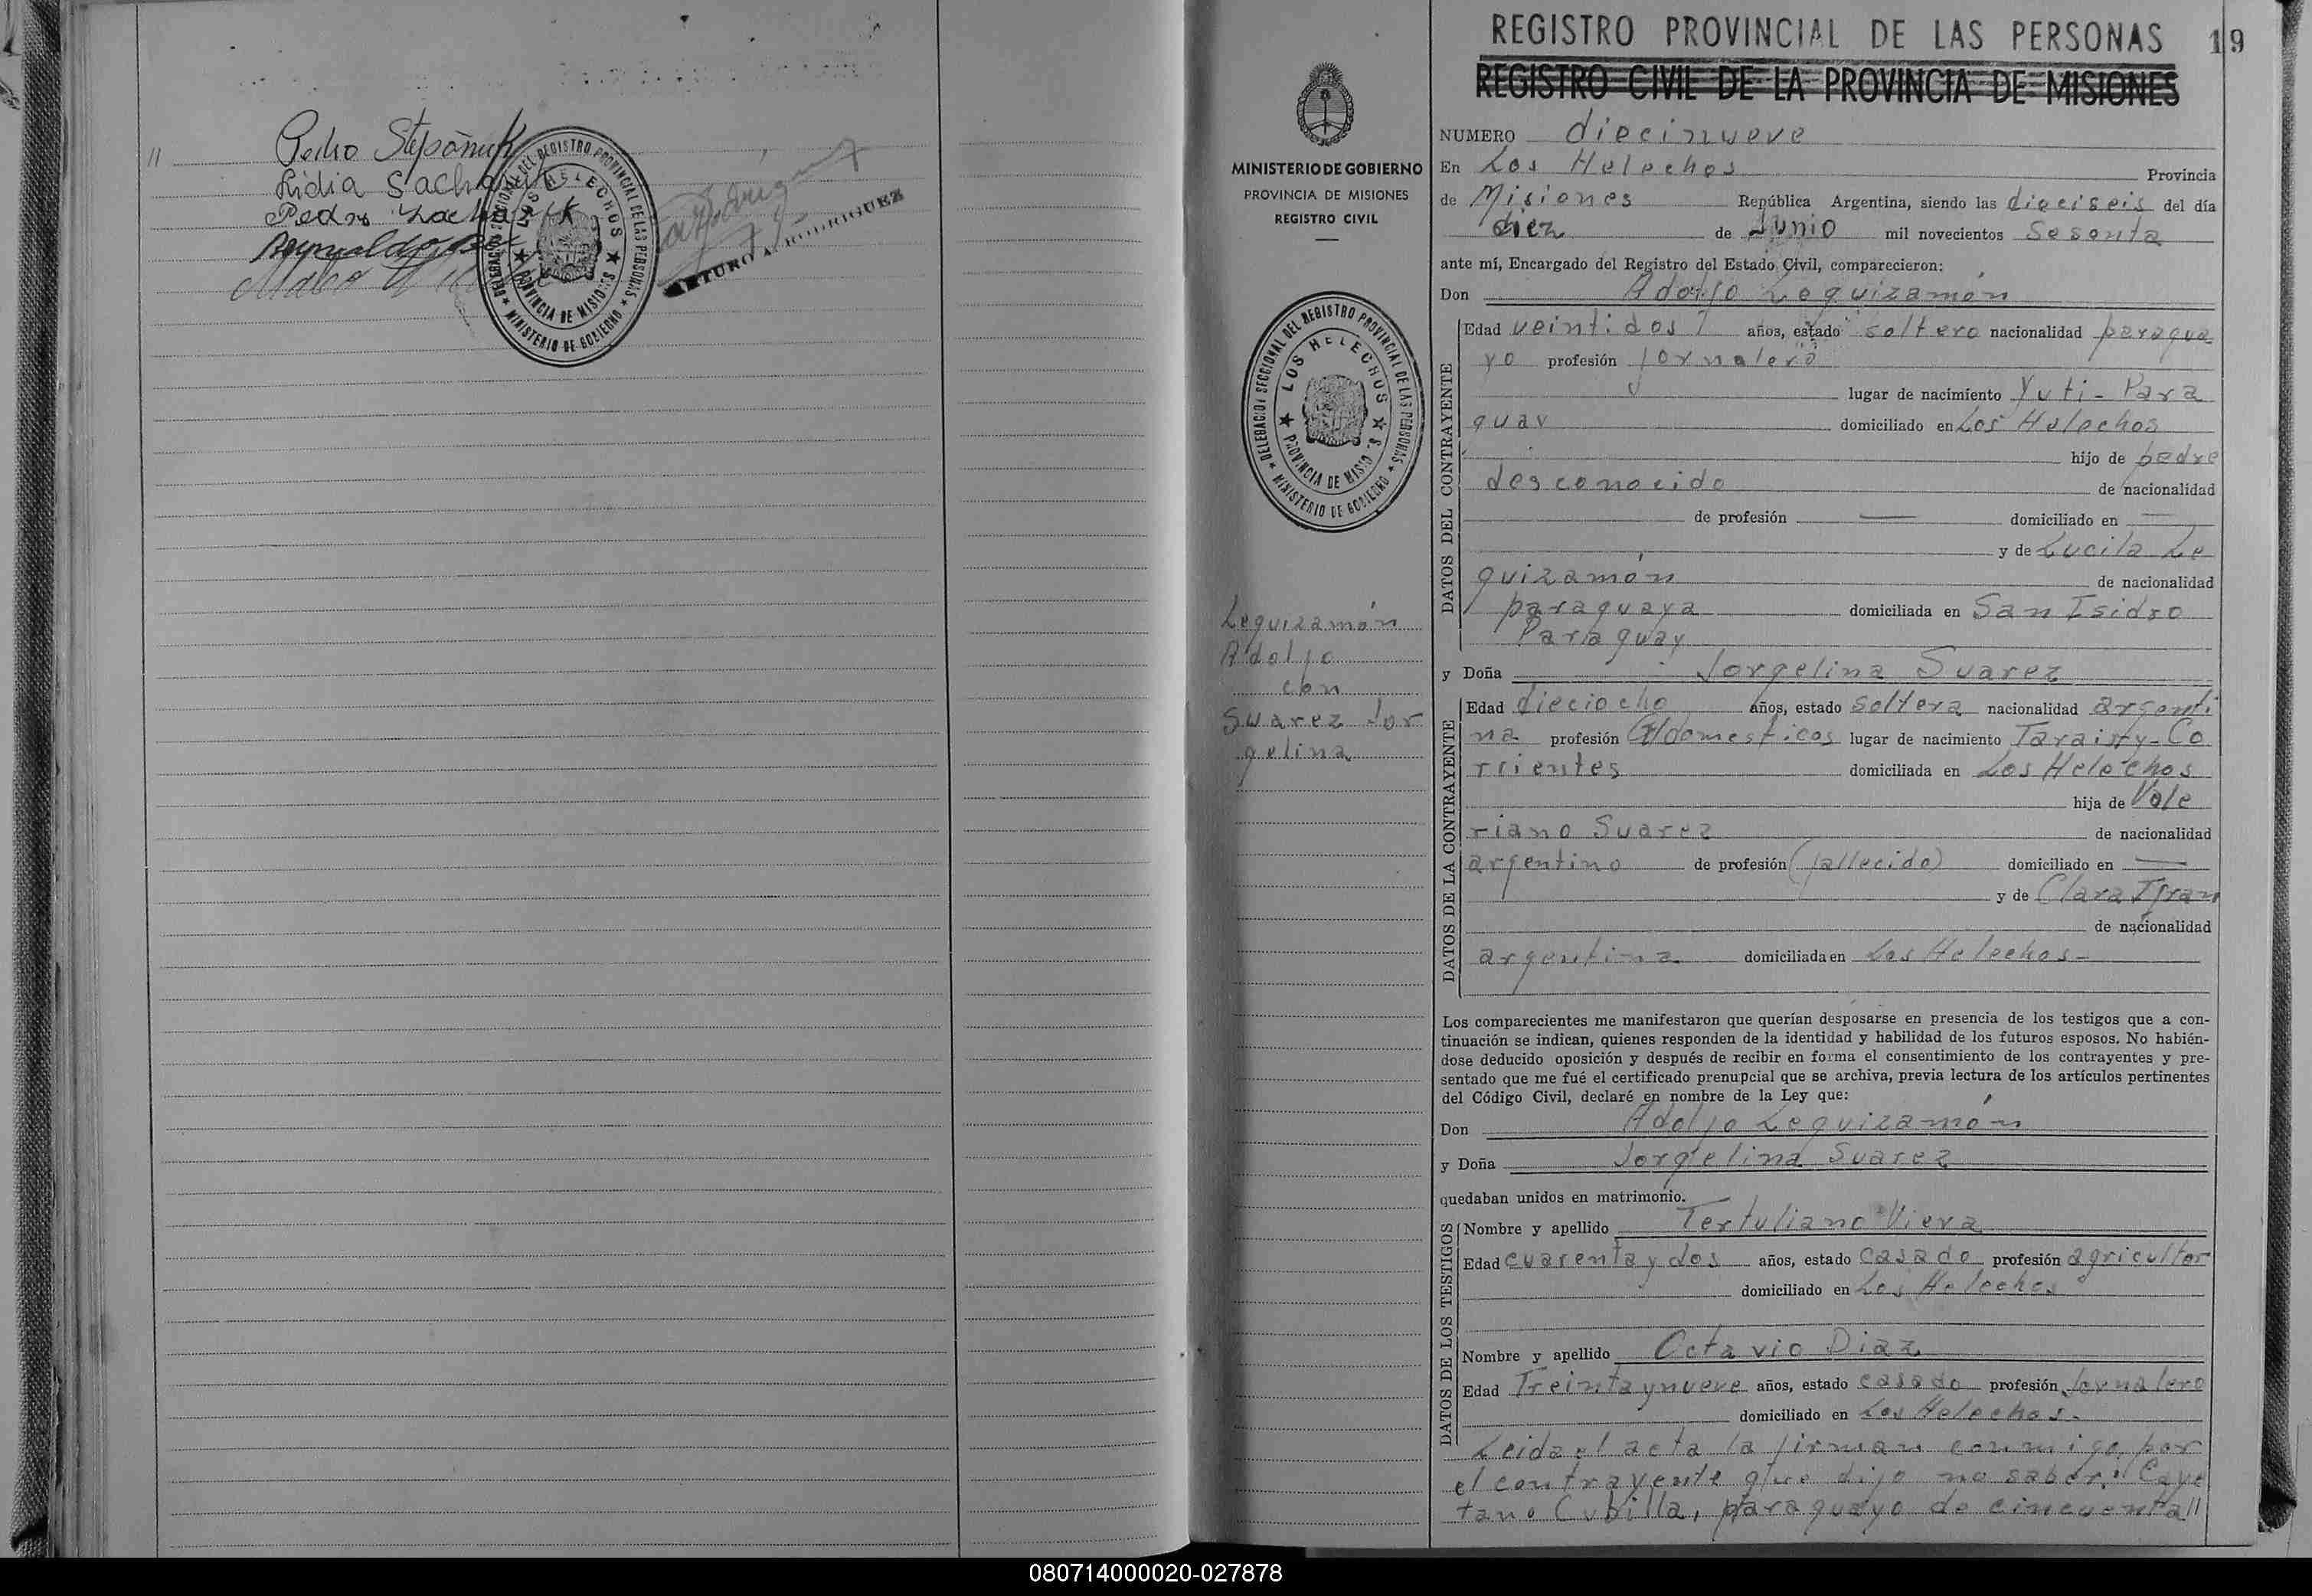 //
Pedro Stepañuk
Lidia Sachañuk
Pedro
Reynaldo
DELEGACION SECCIONAL DEL REGISTRO PROVINCIAL DE LAS PERSONAS
LOS HELECHOS
PROVINCIA DE MISIONES
MINISTERIO DE GOBIERNO
ARTURO A. RODRIGUEZ
MINISTERIO DE GOBIERNO
PROVINCIA DE MISIONES
REGISTRO CIVIL
DELEGACION SECCIONAL DEL REGISTRO PROVINCIAL DE LAS PERSONAS
LOS HELECHOS
PROVINCIA DE MISIONES
MINISTERIO DE GOBIERNO
Leguizamón
Adolfo
con
Suarez Jor
gelina
REGISTRO PROVINCIAL DE LAS PERSONAS 19
REGISTRO CIVIL DE LA PROVINCIA DE MISIONES
NUMERO diecinueve
En Los Helechos Provincia
de Misiones República Argentina, siendo las dieciseis del día
diez de Junio mil novecientos sesenta
ante mí, Encargado del Registro del Estado Civil, comparecieron:
Don Adolfo Leguizamón
DATOS DEL CONTRAYENTE
Edad veintidos años, estado soltero nacionalidad paragua
yo profesión jornalero
lugar de nacimiento Yuti - Para
guay domiciliado en Los Helechos
hijo de padre
desconocido de nacionalidad
de profesión — domiciliado en —
y de Lucila Le
guizamón de nacionalidad
paraguaya domiciliada en San Isidro
Paraguay
y Doña Jorgelina Suarez
DATOS DE LA CONTRAYENTE
Edad dieciocho años, estado soltera nacionalidad argenti
na profesión Qdomesticos lugar de nacimiento Taraisty-Co
rrientes domiciliada en Los Helechos
hija de Vale
riano Suarez de nacionalidad
argentino de profesión (fallecido) domiciliado en —
y de Clara
de nacionalidad
argentina domiciliada en Los Helechos-
Los comparecientes me manifestaron que querían desposarse en presencia de los testigos que a con-
tinuación se indican, quienes responden de la identidad y habilidad de los futuros esposos. No habién-
dose deducido oposición y después de recibir en forma el consentimiento de los contrayentes y pre-
sentado que me fué el certificado prenupcial que se archiva, previa lectura de los artículos pertinentes
del Código Civil, declaré en nombre de la Ley que:
Don Adolfo Leguizamón
y Doña Jorgelina Suarez
quedaban unidos en matrimonio.
DATOS DE LOS TESTIGOS
Nombre y apellido Tertuliano Viera
Edad cuarenta y dos años, estado casado profesión agricultor
domiciliado en Los Helechos
Nombre y apellido Octavio Diaz
Edad Treinta y nueve años, estado casado profesión Jornalero
domiciliado en Los Helechos.
Leida el acta la firman conmigo, por
el contrayente que dijo no saber: Caye
tano Cubilla, paraguayo de cincuenta//
080714000020-027878